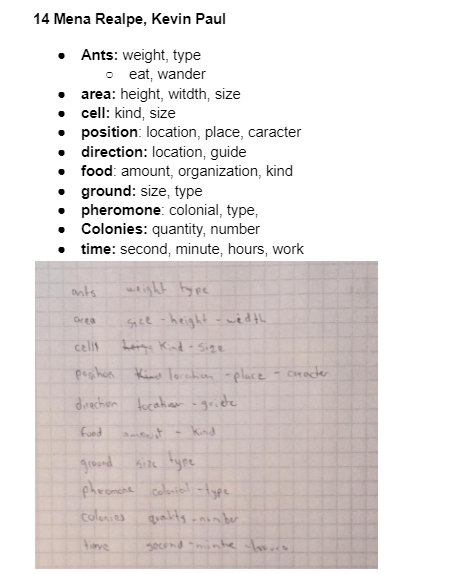 14 Mena Realpe, Kevin Paul
Ants: weight, type
eat, wander
area: height, witdth, size
cell: kind, size
position: location, place, caracter
direction: location, guide
food: amount, organization, kind
ground: size, type
pheromone: colonial, type,
Colonies: quantity, number
time: second, minute, hours, work
ants weight type
area size - height - width
cells kind - size
position location - place - caracter
direction location - guide
food amount - kind
ground size type
pheromone colonial - type
colonies - number
time second - minute - hours